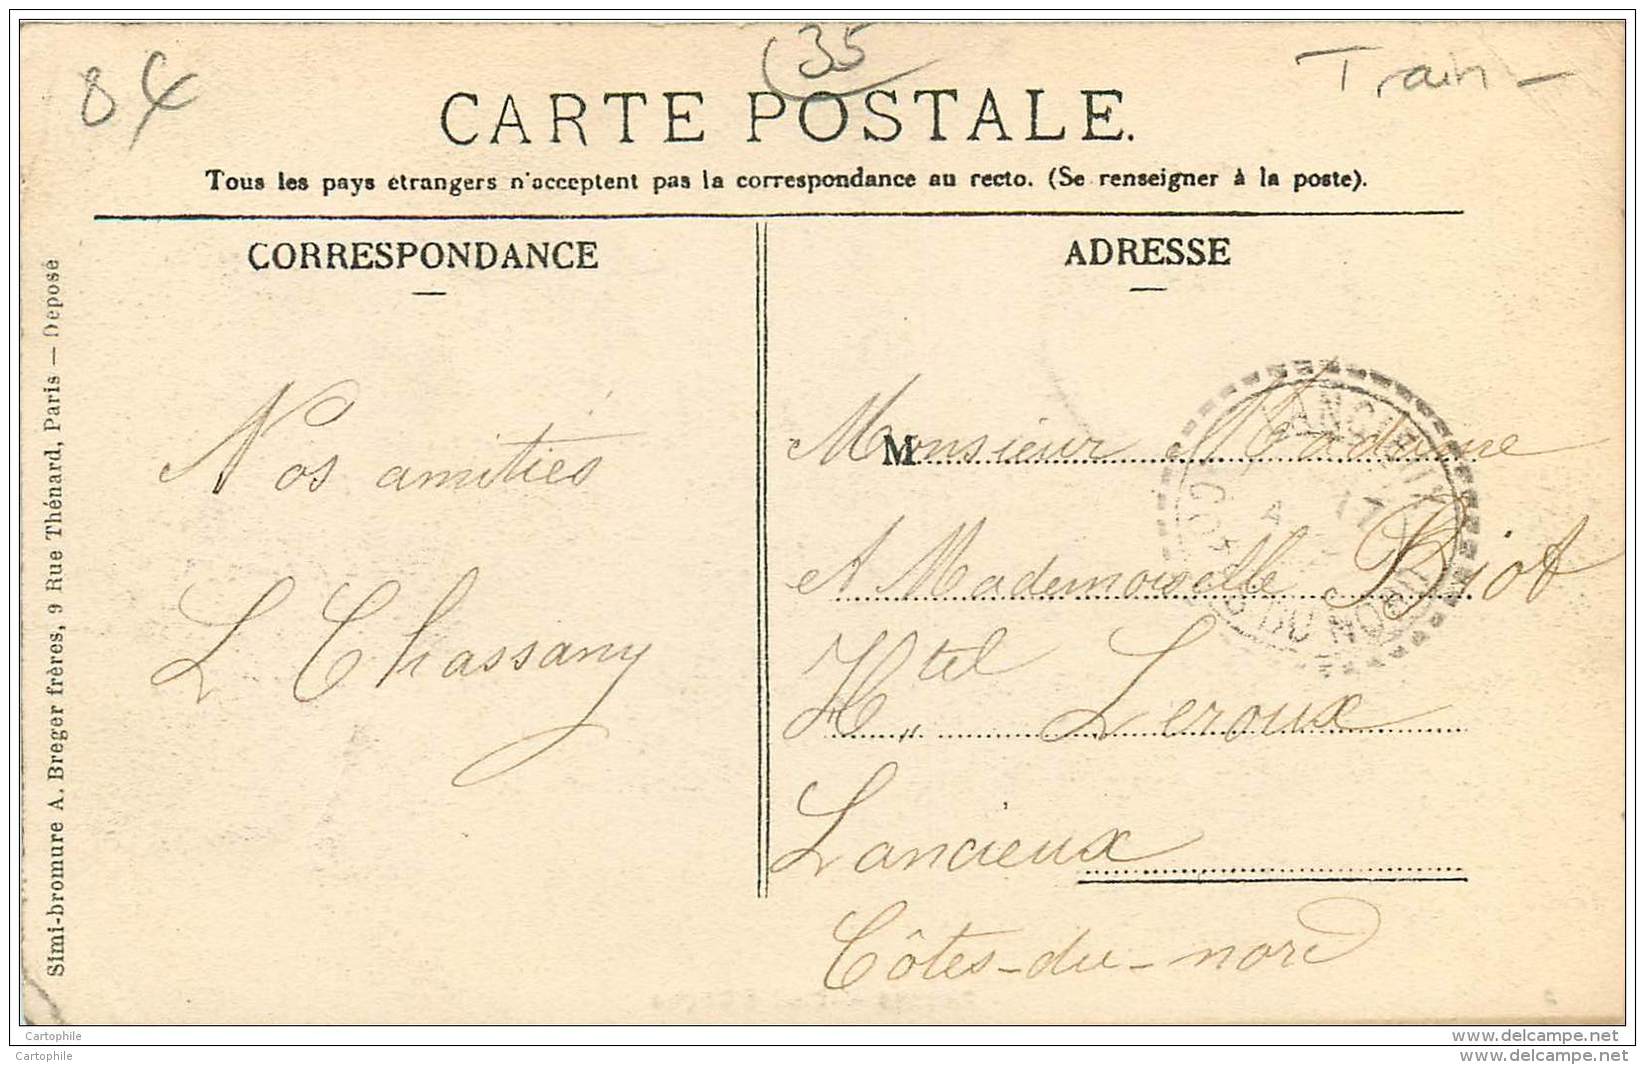 84
35
Train -
CARTE POSTALE.
Tous les pays étrangers n'acceptent pas la correspondance au recto. (Se renseigner à la poste).
CORRESPONDANCE
ADRESSE
Nos amitiés
L Chassany
M
Monsieur Madame
et Mademoiselle Biot
Htel Leroux
Lancieux
Côtes-du-nord
LANCIEUX
17
COTES DU NORD
Simi-bromure A. Breger frères, 9 Rue Thénard, Paris — Déposé
Cartophile
www.delcampe.net
Cartophile
www.delcampe.net